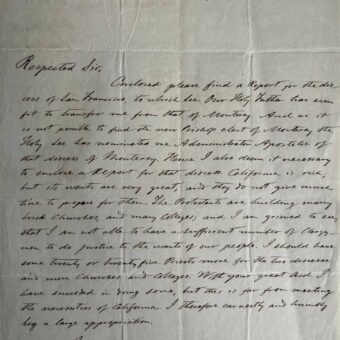 Respected Sir,
Enclosed please find a Report for the dio
cess of San Francisco, to which See Our Holy Father has seen
fit to transfer me from that of Monterey. And as it
is not possible to find the new Bishop elect of Monterey the
Holy See has nominated me Administrator Apostolic of
that diocess of Monterey. Hence I also deem it necessary
to enclose a Report for that diocess. California is rich,
but its wants are very great, and they do not give much
time to prepare for them. The Protestants are building many
brick Churches, and many Colleges, and I am grieved to see
that I am not able to have a sufficient number of Clergy-
men to do justice to the wants of our people. I should have
some twenty or twenty five Priests more for the two diocesses
and more Churches and Colleges. With your great aid I
have succeeded in doing some, but this is far from meeting
the necessities of California. I therefore earnestly and humbly
beg a large appropriation.